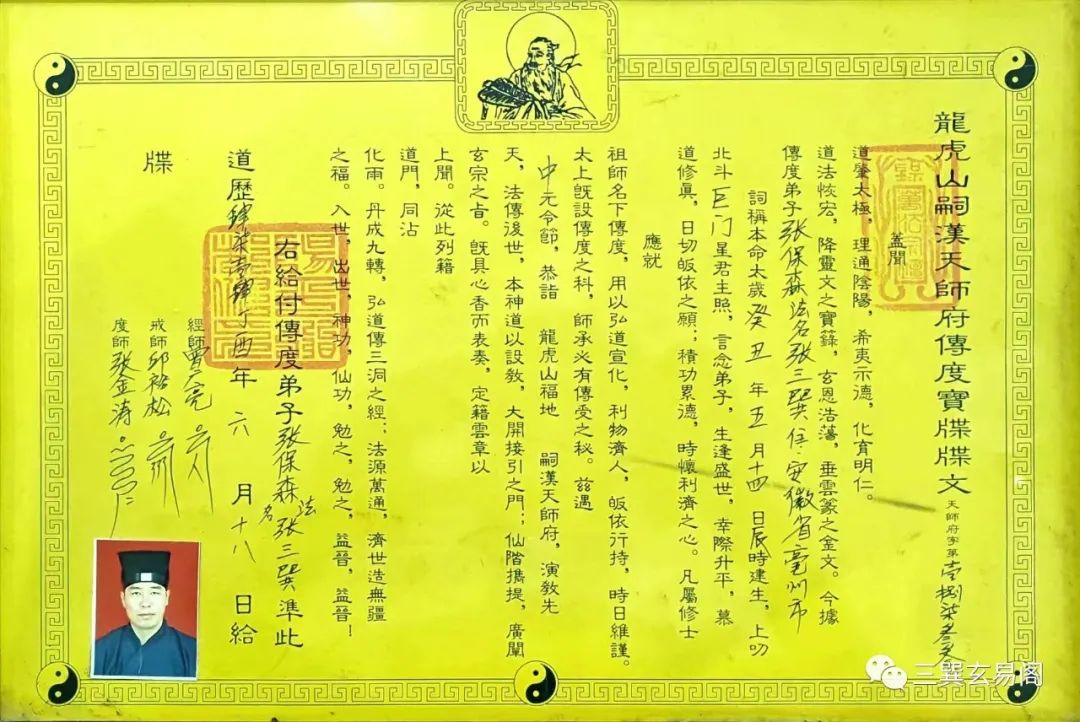 龍虎山嗣漢天師府傳度寶牒牒文 天師府字第壹捌柒叁
蓋聞
道肇太極，理通陰陽，希夷示德，化育明仁。
道法恢宏，降靈文之寶籙，玄恩浩蕩，垂雲篆之金文。今據
傳度弟子張保森法名張三巽住：安徽省亳州市
詞稱本命太歲癸丑年五月十四日辰時建生，上叩
北斗巨门星君主照，言念弟子，生逢盛世，幸際升平，慕
道修眞，日切皈依之願；積功累德，時懷利濟之心。凡屬修士
應就
祖師名下傳度，用以弘道宣化，利物濟人，皈依行持，時日維謹。
太上旣設傳度之科，師承必有傳受之秘。兹遇
中元令節，恭詣 龍虎山福地 嗣漢天師府，演敎先
天，法傳後世，本神道以設敎，大開接引之門；仙階攜提，廣闡
玄宗之旨。旣具心香而表奏，定籍雲章以
上聞。從此列籍
道門，同沾
化雨。丹成九轉，弘道傳三洞之經；法源萬通，濟世造無疆
之福。入世，出世，神功，仙功，勉之，勉之，益晉，益晉！
右給付傳度弟子張保森法名張三巽準此
道歷肆柒壹肆丁酉年六月十八日給
牒
經師
戒師邱裕松
度師張金涛
三巽玄易阁